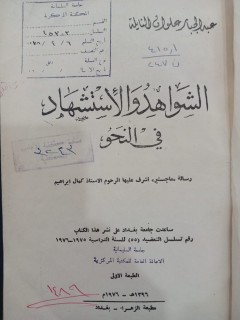 عبد الجبار علوان النايلة
الشواهد والاستشهاد
في النحو
رسالة ماجستير، اشرف عليها المرحوم الاستاذ كمال ابراهيم
ساعدت جامعة بغداد على نشر هذا الكتاب
رقم تسلسل التعضيد (٥٥) للسنة الدراسية ١٩٧٥-١٩٧٦
الطبعة الاولى
١٣٩٦هـ - ١٩٧٦م
مطبعة الزهراء - بغداد